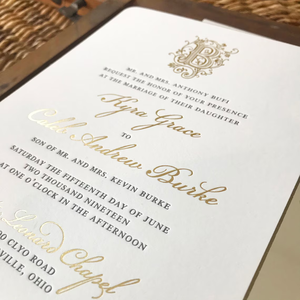 B
MR. AND MRS. ANTHONY BUFI
REQUEST THE HONOR OF YOUR PRESENCE
AT THE MARRIAGE OF THEIR DAUGHTER
Kyra Grace
TO
Caleb Andrew Burke
SON OF MR. AND MRS. KEVIN BURKE
SATURDAY THE FIFTEENTH DAY OF JUNE
TWO THOUSAND NINETEEN
AT ONE O'CLOCK IN THE AFTERNOON
Chapel
00 CLYO ROAD
VILLE, OHIO